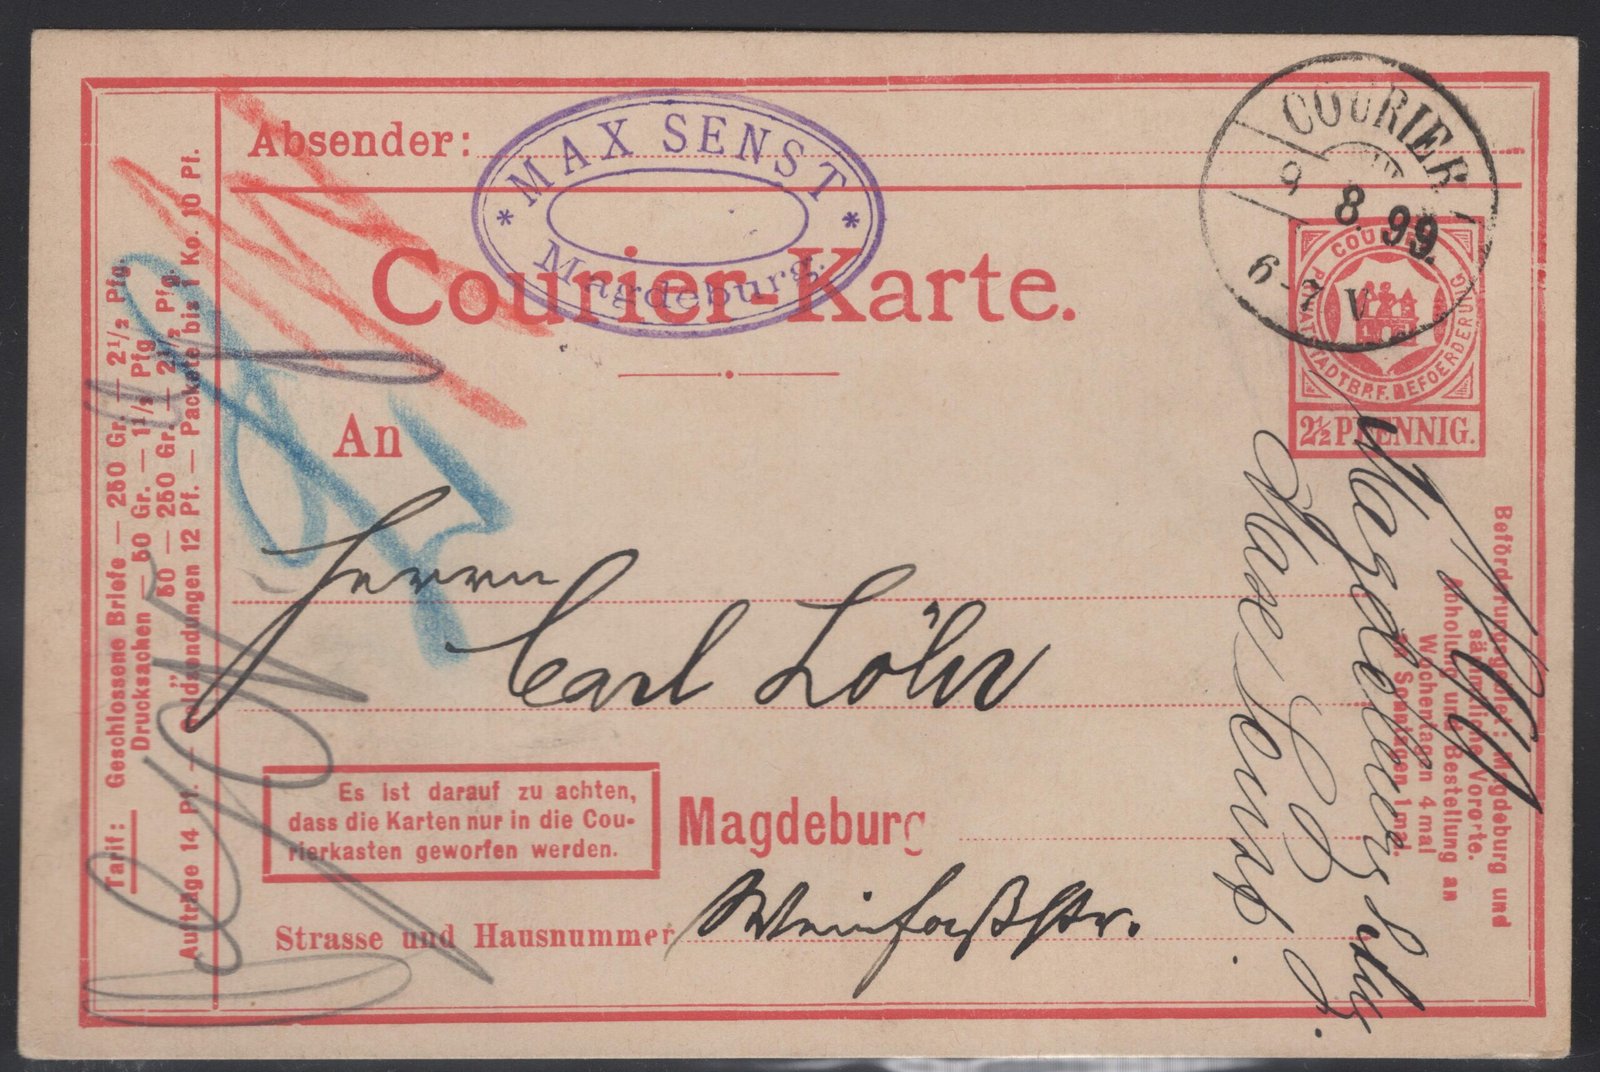 Absender:
* MAX SENST *
Magdeburg.
Courier-Karte.
COURIER
9 8. 99.
6-7 V
COURIER
PRIVAT STADTBRF. BEFOERDERUNG
2½ PFENNIG.
An
Herrn
Carl Löhr
Es ist darauf zu achten,
dass die Karten nur in die Cou-
rierkasten geworfen werden.
Magdeburg
Strasse und Hausnummer
Weinfaßstr.
Tarif:
Geschlossene Briefe — 250 Gr. — 2½ Pfg.
Drucksachen — 50 Gr. — 1½ Pfg.
50 — 250 Gr. — 2½ Pfg.
Aufträge 14 Pf. — Geldsendungen 12 Pf. — Packete bis 1 Ko. 10 Pf.
Beförderungsgebiet: Magdeburg und
sämmtliche Vororte.
Abholung und Bestellung an
Wochentagen 4 mal
an Sonntagen 1 mal.
Magdeburg
Max Senst